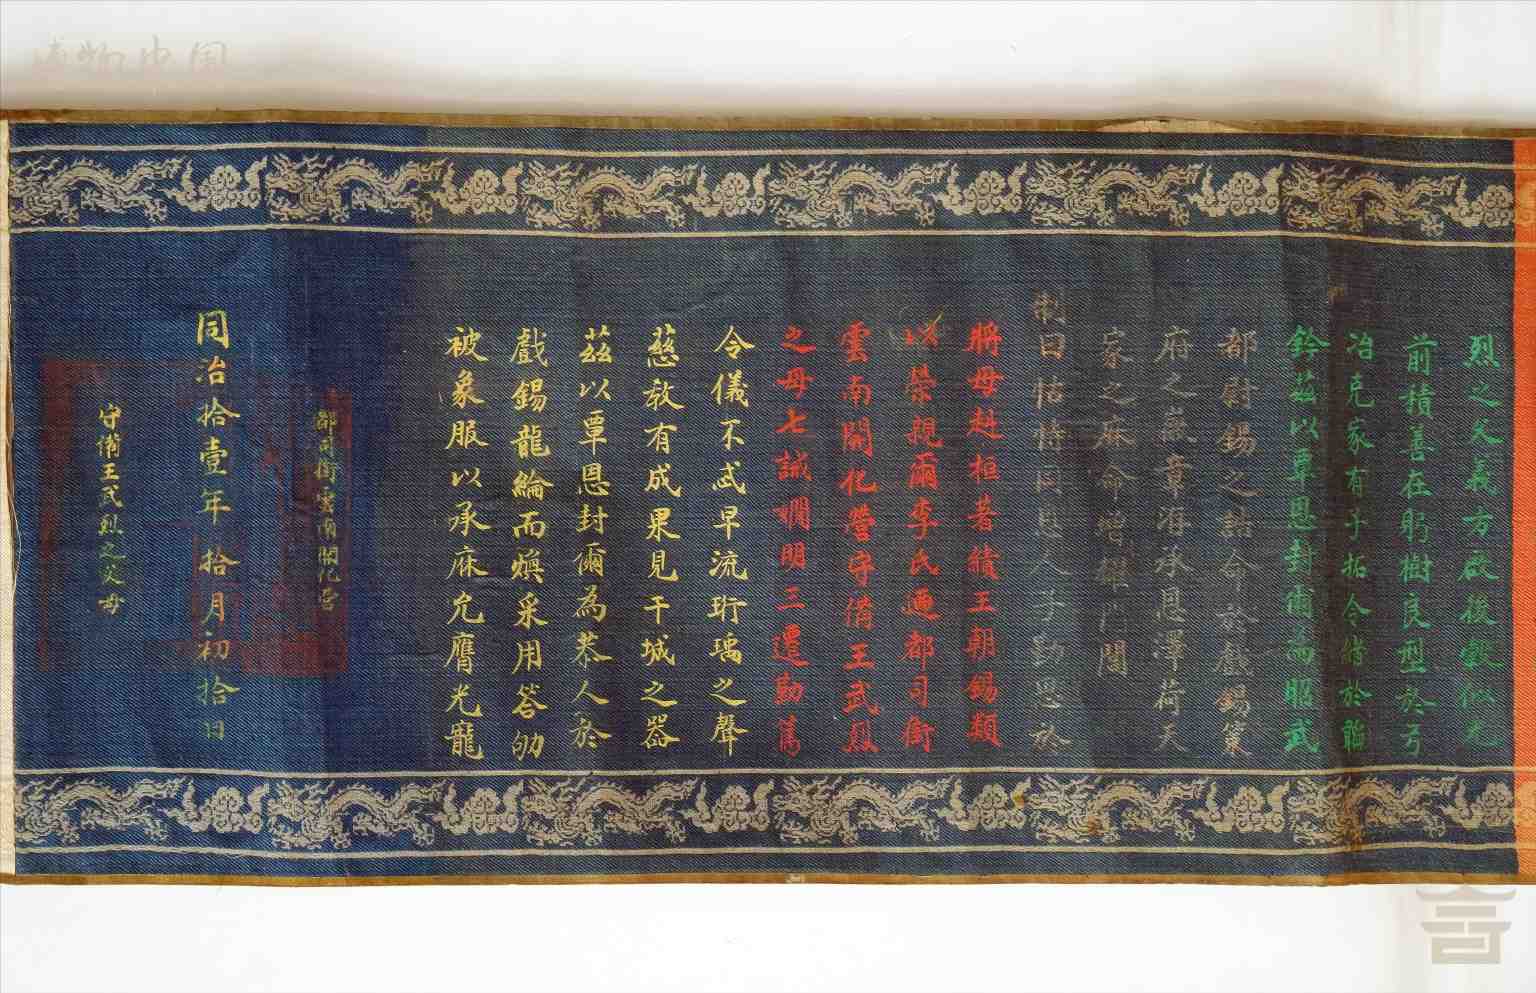 烈之父義方啟後穀似光
前積善在躬樹良型於弓
冶克家有子拓令緒於韜
鈐茲以覃恩封爾為昭武
都尉錫之誥命於戲錫策
府之徽章洊承恩澤荷天
家之庥命增耀門閭
制曰怙恃同恩人子勤思於
將母赳桓著績王朝錫類
以榮親爾李氏迺都司銜
雲南開化營守備王武烈
之母七誡嫻明三遷勤篤
令儀不忒早流珩瑀之聲
慈教有成果見干城之器
茲以覃恩封爾為恭人於
戲錫龍綸而煥采用答劬
被象服以承庥允膺光寵
都司銜雲南開化營
同治拾壹年拾月初拾日
守備王武烈之父母
博物中国